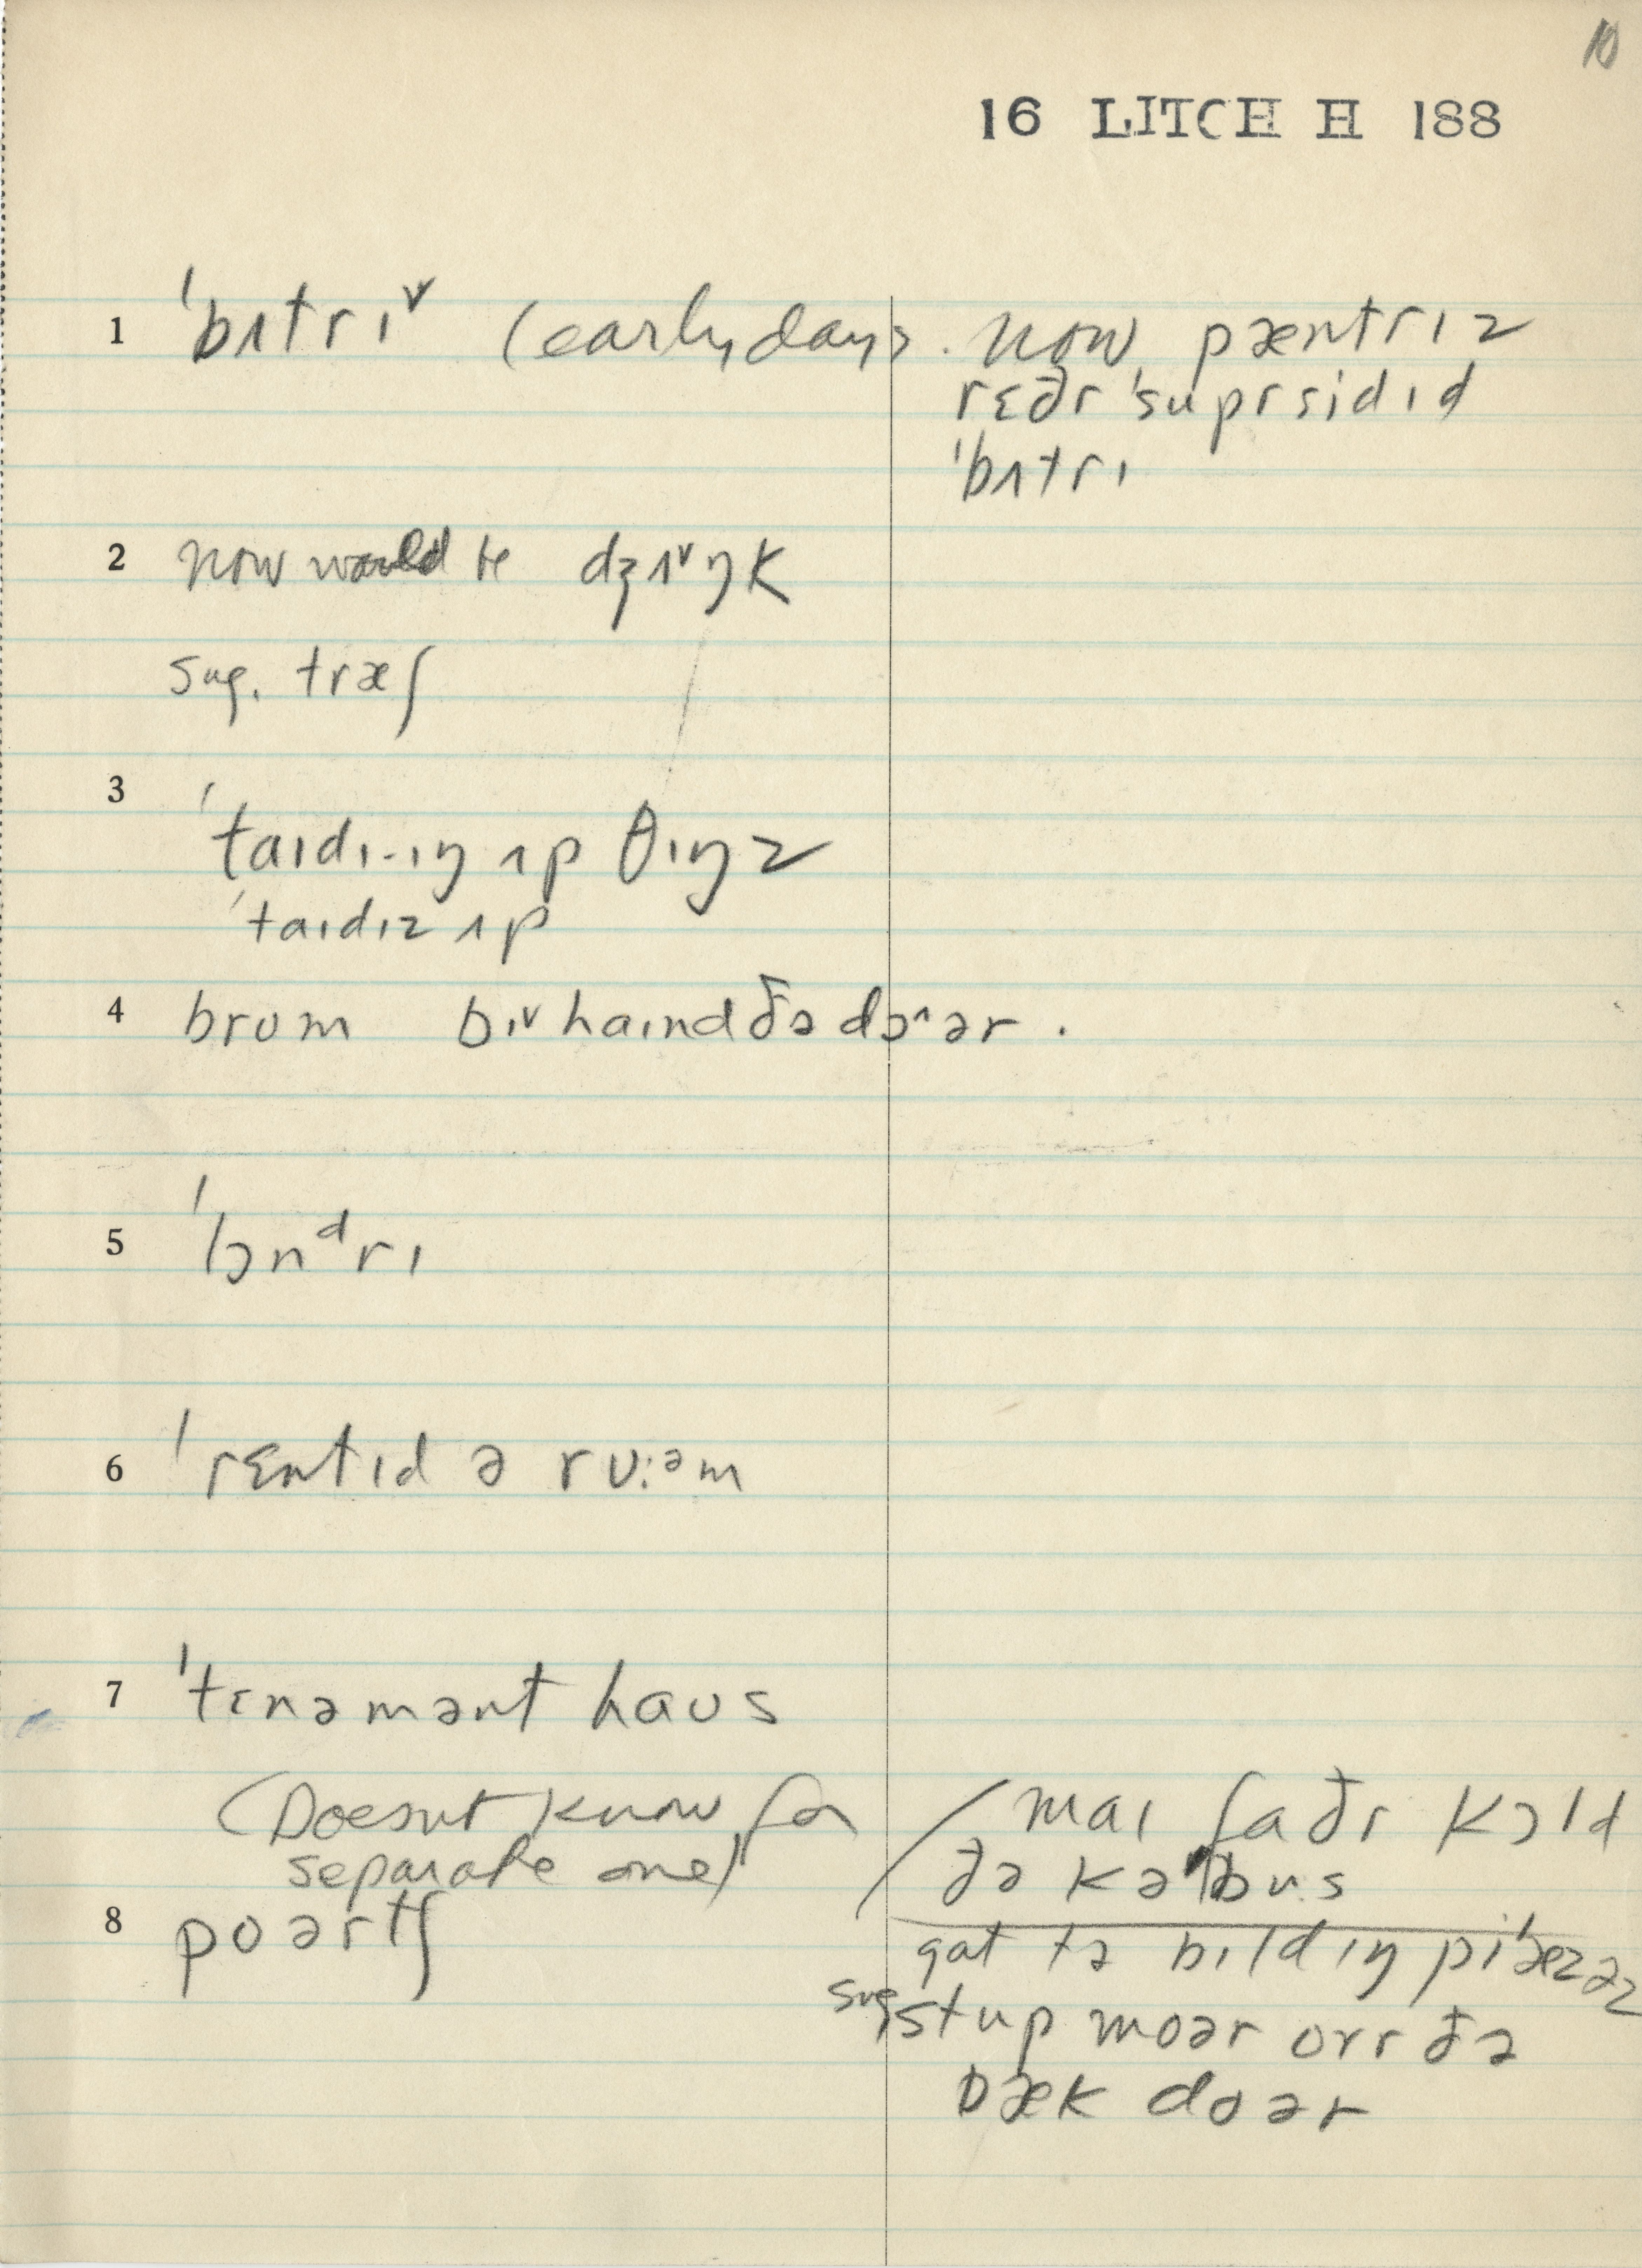 10
16 LITCH H 188
1 ˈbʌtrɪ˅ (early days. now pæntrɪz
rɛðr ˈsuprsidɪd
ˈbʌtrɪ
2 now would be dʒʌ˅ŋk
sug. træʃ
3 ˈtaɪdɪ-ɪŋ ʌp θɪŋz
ˈtaɪdɪz ʌp
4 brum bɪ˅haɪnd ðə dɔ˄ər.
5 ˈlɔnᵈrɪ
6 ˈrɛntɪd ə rʊ:ᵊm
7 ˈtɛnəmənt haʊs
(Doesnt know for
separate one)
/ maɪ faðr kɔld
ðə kəˈbus
8 poərtʃ
gat tə bɪldɪŋ piˈæzəz
sug stup moər ovr ðə
bæk doər